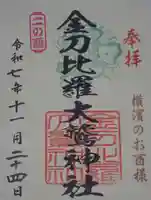 奉拝
横濱のお酉様
金刀比羅大鷲神社
二の酉
令和七年十一月二十四日